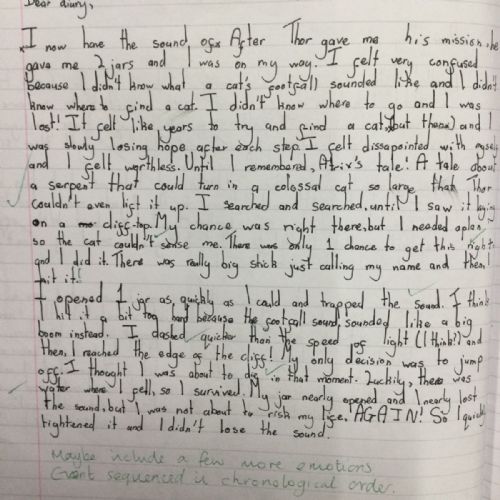 Dear diary,
I now have the sound of After Thor gave me his mission, he
gave me 2 jars and I was on my way. I felt very confused
because I didn't know what a cat's footfall sounded like and I didn't
know where to find a cat. I didn't know where to go and I was
lost! It felt like years to try and find a cat (but there) and I
was slowly losing hope after each step. I felt dissapointed with myself
and I felt worthless. Until I remembered, Atrix's tale! A tale about
a serpent that could turn in a colossal cat so large that Thor
couldn't even lift it up. I searched and searched, until I saw it laying
on a cliff-top. My chance was right there, but I needed a plan
so the cat couldn't sense me. There was only 1 chance to get this right
and I did it. There was really big stick just calling my name and then I
hit it!
I opened 1 jar as, quickly as I could and trapped the sound. I think
I hit it a bit too hard because the footfall sound, sounded like a big
boom instead. I dashed quicker than the speed of light (I think!) and
then, I reached the edge of the cliff! My only decision was to jump
off. I thought I was about to die in that moment. Luckily, there was
water where I fell, so I survived. My jar nearly opened and I nearly lost
the sound, but I was not about to risk my life. AGAIN! So I quickly
tightened it and I didn't lose the sound.
Maybe include a few more emotions
Event sequenced in chronological order.